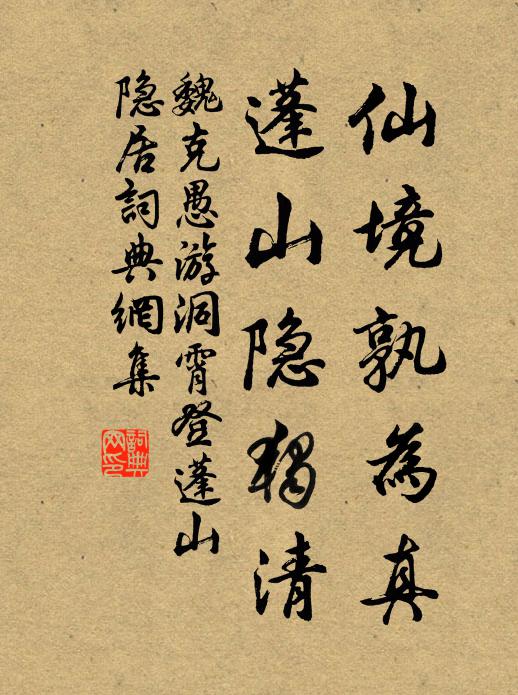 仙境孰為真
蓬山隐獨清
魏克愚游洞霄登蓬山
隐居詞典網集
詞典網印